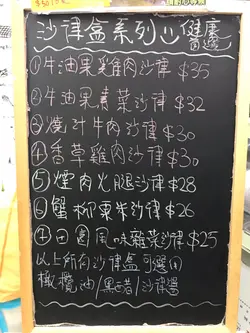 沙律盒系列 健康首選
①牛油果雞肉沙律 $35
②牛油果素菜沙律 $32
③燒汁牛肉沙律 $30
④香草雞肉沙律 $30
⑤煙肉火腿沙律 $28
⑥蟹柳粟米沙律 $26
⑦田園風味雜菜沙律 $25
以上所有沙律盒可選用
橄欖油/黑醋/沙律醬